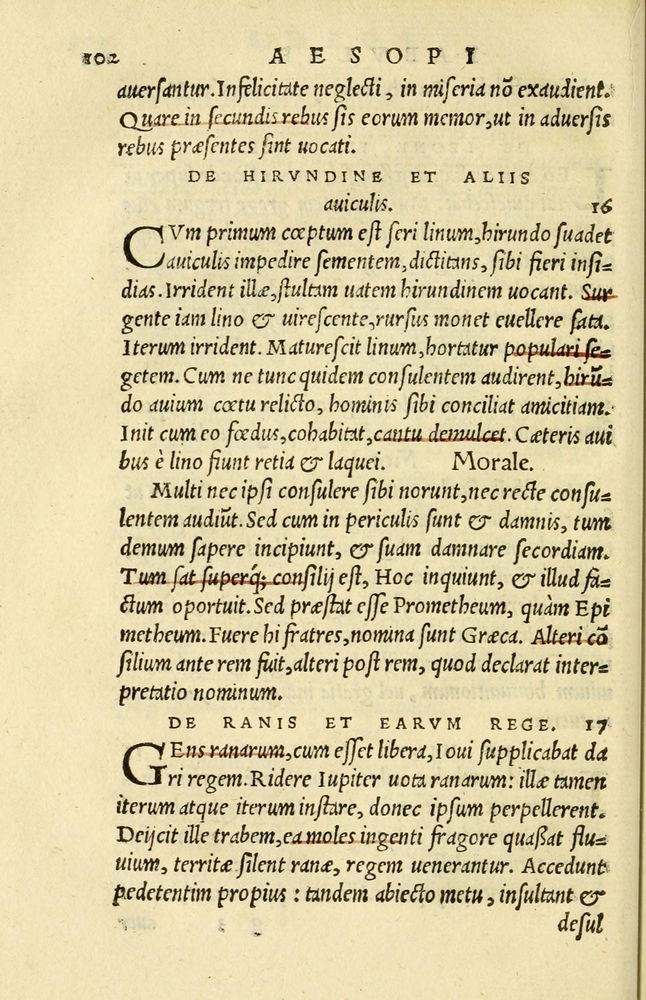 102 AESOPI
auersantur. Infelicitate neglecti, in miseria nō exaudient.
Quare in secundis rebus sis eorum memor, ut in aduersis
rebus præsentes sint uocati.
DE HIRVNDINE ET ALIIS
auiculis. 16
CVm primum cœptum est seri linum, hirundo suadet
auiculis impedire sementem, dictitans, sibi fieri insi=
dias. Irrident illæ, stultam uatem hirundinem uocant. Sur
gente iam lino & uirescente, rursus monet euellere sata.
Iterum irrident. Maturescit linum, hortatur populari se=
getem. Cum ne tunc quidem consulentem audirent, hirū=
do auium cœtu relicto, hominis sibi conciliat amicitiam.
Init cum eo fœdus, cohabitat, cantu demulcet. Cæteris aui
bus è lino fiunt retia & laquei. Morale.
Multi nec ipsi consulere sibi norunt, nec recte consu=
lentem audiūt. Sed cum in periculis sunt & damnis, tum
demum sapere incipiunt, & suam damnare secordiam.
Tum sat superq́; consilij est, Hoc inquiunt, & illud fa=
ctum oportuit. Sed præstat esse Prometheum, quàm Epi
metheum. Fuere hi fratres, nomina sunt Græca. Alteri cō
silium ante rem fuit, alteri post rem, quod declarat inter=
pretatio nominum.
DE RANIS ET EARVM REGE. 17
GEns ranarum, cum esset libera, Ioui supplicabat da
ri regem. Ridere Iupiter uota ranarum: illæ tamen
iterum atque iterum instare, donec ipsum perpellerent.
Deijcit ille trabem, ea moles ingenti fragore quaßat flu=
uium, territæ silent ranæ, regem uenerantur. Accedunt
pedetentim propius: tandem abiecto metu, insultant &
desul